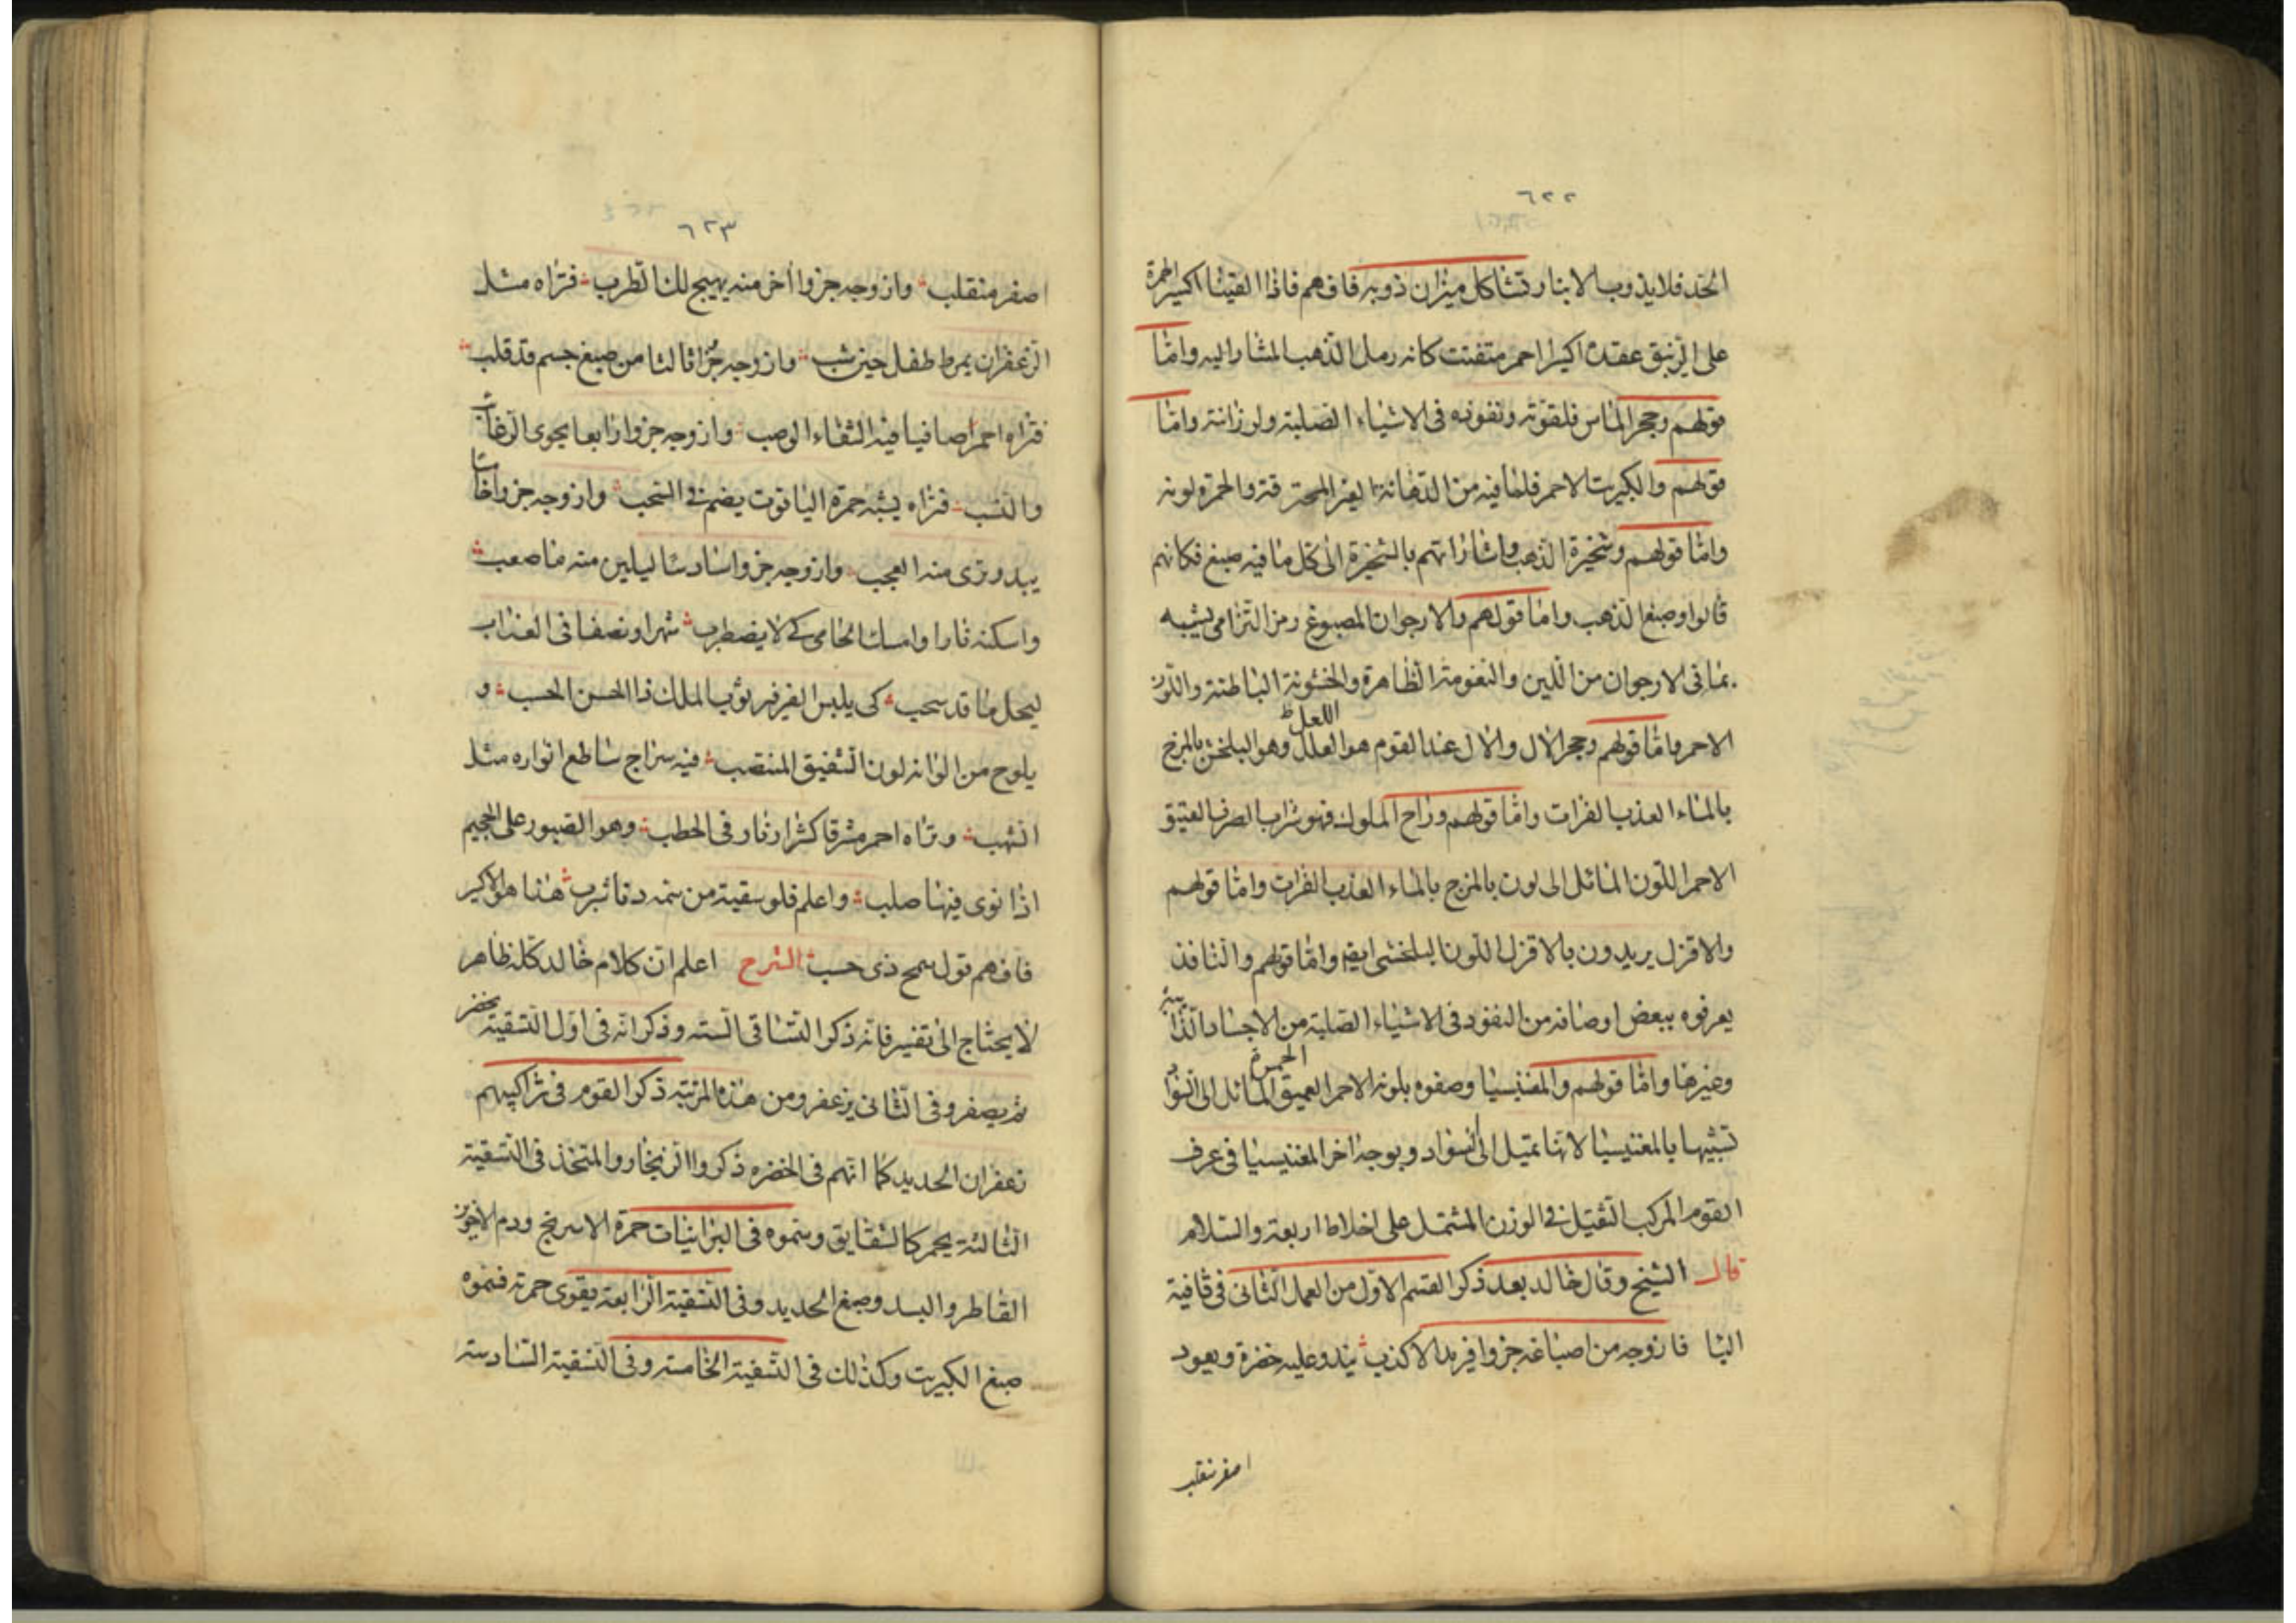 ٦٢٢
الحد فلا يذوب الا بنار وتشاكل ميزان ذوبه فافهم فاذا القينا اكسير الحمرة
على الزيبق عقده اكسيرا احمر متفتت كانه رمل الذهب المشار اليه واما
قولهم وحجر الماس فلقوته ونفوذه فى الاشياء الصلبة ولرزانته واما
قولهم والكبريت الاحمر فلما فيه من الدهانة الغير المحترقة والحمرة لونه
واما قولهم وشخيرة الذهب واشاراتهم بالشخيرة الى كل ما فيه صبغ فكانهم
قالوا وصبغ الذهب واما قولهم والارجوان المصبوغ رمز التزامى يشبه
بما فى الارجوان من اللين والنعومة الظاهرة والخشونة الباطنة واللون
الاحمر واما قولهم وحجر الال والال عند القوم هو العلل اللعل وهو البلخش بالمزج
بالماء العذب الفرات واما قولهم وراح الملوك فهو شراب الصرف العتيق
الاحمر اللون المائل الى لون بالمزج بالماء العذب الفرات واما قولهم
والاقزل يريدون بالاقزل اللون البلخشى ايضا واما قولهم والنافذ
يعرفوه ببعض اوصافه من النفوذ فى الاشياء الصلبة من الاجساد الذائبة
وغيرها واما قولهم والمغنيسيا وصفوه بلونه الاحمر العميق المائل الى السواد
تشبيها بالمغنيسيا لانها تميل الى السواد وبوجه اخر المغنيسيا فى عرف
القوم المركب الثقيل فى الوزن المشتمل على اخلاط اربعة والسلام
قال الشيخ وقال خالد بعد ذكر القسم الاول من العمل الثانى فى قافية
البا فازوجه من اصباغه جزوا فريدا لا كذب يبدو عليه خضرة ويعود
اصفر منقلب
٦٢٣
اصفر منقلب وازوجه جزوا اخر منه يهيج لك الطرب فتراه مثل
الزعفران بمرط طفل حين شب وازوجه جزا ثالثا من صبغ جسم قد قلب
فتراه احمر صافيا فيه الشفاء الوصب وازوجه جزوا رابعا يحوى الرغائب
والنشب فتراه يشبه حمرة الياقوت يضم فى السحب وازوجه جزوا خامسا
يبدو ترى منه العجب وازوجه جزوا سادسا ليلين منه ما صعب
واسكنه نارا وامسك الحامى كى لا يضطرب شهرا ونصفا فى العذاب
ليحل ما قد سحب كى يلبس الفرفير ثوب الملك ذا الحسن الحسب و
يلوح من الوانه لون الشقيق المنتصب فيه سراج ساطع انواره مثل
الشهب وتراه احمر مشرقا كشرار نار فى الحطب وهو الصبور على الجحيم
اذا نوى فيها صلب واعلم فلو سقيته من سمه دقا شرب هذا هو الاكسير
فافهم قول سمح ذى حسب الشرح اعلم ان كلام خالد كله ظاهر
لا يحتاج الى تفسير فانه ذكر التساقى الستة وذكر انه فى اول التسقية يخضر
ثم يصفر وفى الثانى يزعفر ومن هذه المرتبة ذكر القوم فى تراكيبهم
زعفران الحديد كما انهم فى الخضره ذكروا الزنجار والمتخذ فى التسقية
الثالثة يحمر كالشقايق وسموه فى البرانيات حمرة الاسرنج ودم الاخوين
القاطر والبسد وصبغ الحديد وفى التسقية الرابعة يقوى حمرته فسموه
صبغ الكبريت وكذلك فى التسقية الخامسة وفى التسقية السادسة